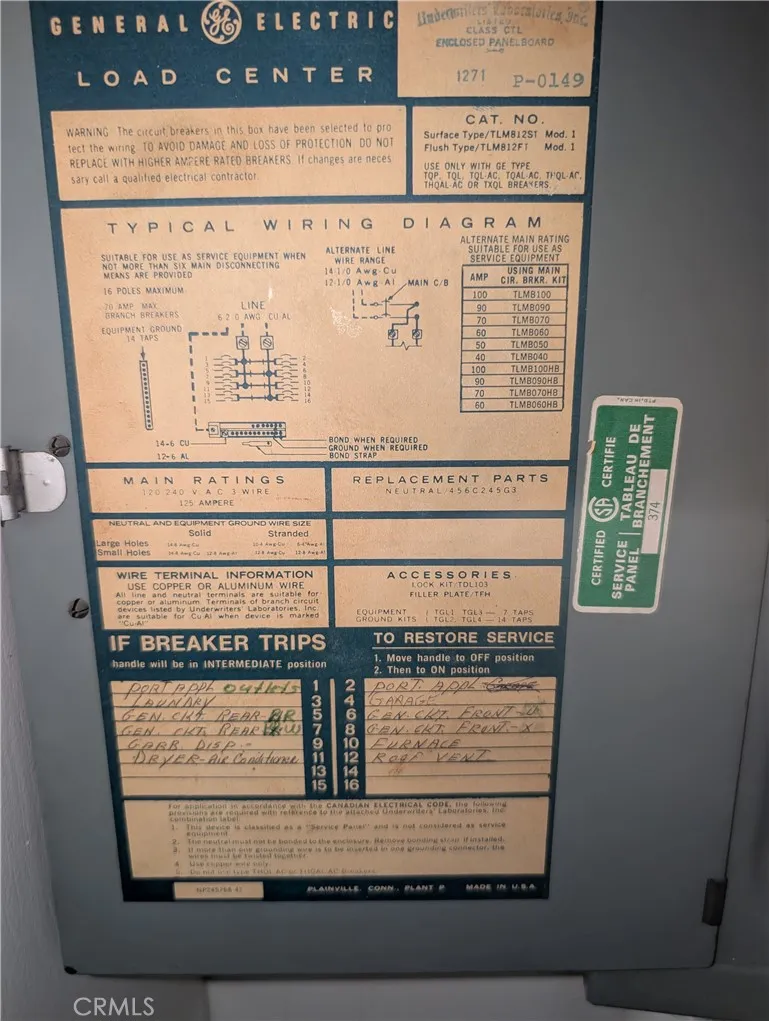 GENERAL GE ELECTRIC
LOAD CENTER
Underwriters' Laboratories, Inc.
LISTED
CLASS CTL
ENCLOSED PANELBOARD
1271 P-0149
WARNING: The circuit breakers in this box have been selected to pro
tect the wiring. TO AVOID DAMAGE AND LOSS OF PROTECTION DO NOT
REPLACE WITH HIGHER AMPERE RATED BREAKERS. If changes are neces
sary call a qualified electrical contractor.
CAT. NO.
Surface Type/TLM812S1 Mod. 1
Flush Type/TLM812F1 Mod. 1
USE ONLY WITH GE TYPE
TQP, TQL, TQL-AC, TQAL-AC, THQL-AC,
THQAL-AC OR TXQL BREAKERS.
TYPICAL WIRING DIAGRAM
SUITABLE FOR USE AS SERVICE EQUIPMENT WHEN
NOT MORE THAN SIX MAIN DISCONNECTING
MEANS ARE PROVIDED
16 POLES MAXIMUM
70 AMP. MAX.
BRANCH BREAKERS
EQUIPMENT GROUND
14 TAPS
LINE
6 2/0 AWG. CU AL
1 2
3 4
5 6
7 8
9 10
11 12
13 14
15 16
14-6 CU
12-6 AL
BOND WHEN REQUIRED
GROUND WHEN REQUIRED
BOND STRAP
ALTERNATE LINE
WIRE RANGE
14-1/0 Awg-Cu
12-1/0 Awg-Al
MAIN C/B
ALTERNATE MAIN RATING
SUITABLE FOR USE AS
SERVICE EQUIPMENT
AMP USING MAIN CIR. BRKR. KIT
100 TLMB100
90 TLMB090
70 TLMB070
60 TLMB060
50 TLMB050
40 TLMB040
100 TLMB100HB
90 TLMB090HB
70 TLMB070HB
60 TLMB060HB
MAIN RATINGS
120/240 V.A.C. 3 WIRE
125 AMPERE
REPLACEMENT PARTS
NEUTRAL/456C245G3
NEUTRAL AND EQUIPMENT GROUND WIRE SIZE
Solid Stranded
Large Holes
Small Holes
WIRE TERMINAL INFORMATION
USE COPPER OR ALUMINUM WIRE
All line and neutral terminals are suitable for
copper or aluminum. Terminals of branch circuit
devices listed by Underwriters' Laboratories, Inc.
are suitable for Cu/Al when device is marked
"Cu-Al"
ACCESSORIES
LOCK KIT/TQL103
FILLER PLATE/TFH
EQUIPMENT ( TGL1, TGL3 — 7 TAPS
GROUND KITS ( TGL2, TGL4 — 14 TAPS
CERTIFIED SA CERTIFIE
SERVICE PANEL TABLEAU DE BRANCHEMENT
374
IF BREAKER TRIPS
handle will be in INTERMEDIATE position
TO RESTORE SERVICE
1. Move handle to OFF position
2. Then to ON position
PORT APPL outlets 1 2 PORT. APPL
LAUNDRY 3 4 GARAGE
GEN. CKT. REAR-BR 5 6 GEN. CKT. FRONT-
GEN. CKT. REAR 7 8 GEN. CKT. FRONT-X
GARB. DISP.- 9 10 FURNACE
DRYER-Air Conditioner 11 12 ROOF VENT
13 14
15 16
For application in accordance with the CANADIAN ELECTRICAL CODE, the following
provisions are required with reference to the attached Underwriters' Laboratories, Inc.
combination label:
1. This device is classified as a "Service Panel" and is not considered as service
equipment.
2. The neutral must not be bonded to the enclosure. Remove bonding strap if installed.
3. If more than one grounding wire is to be inserted in one grounding connector, the
wires must be twisted together.
4. Use copper wire only.
PLAINVILLE, CONN., PLANT P MADE IN U.S.A.
CRMLS